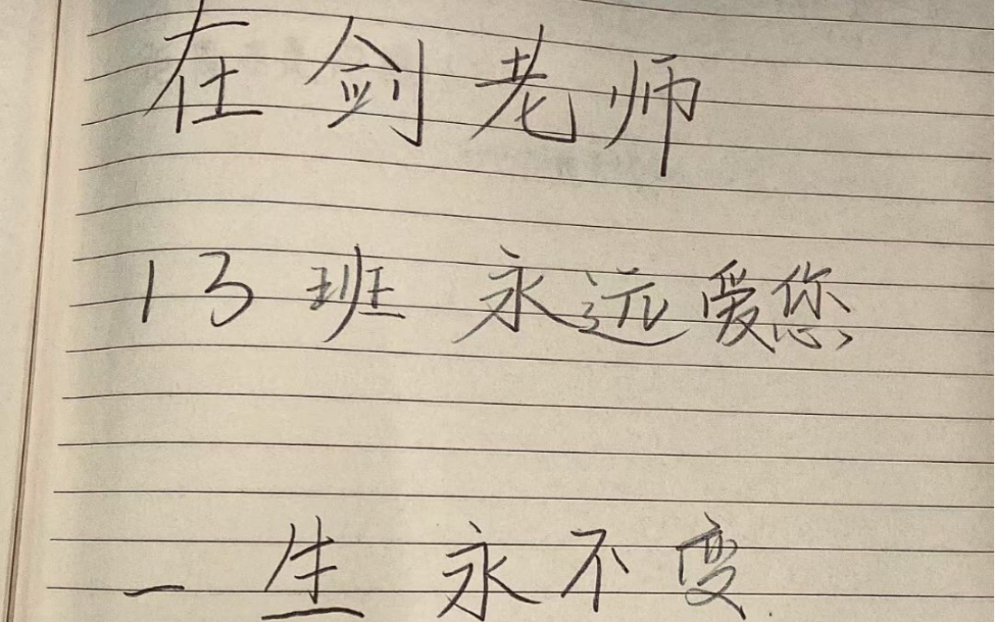 在剑老师
13班 永远爱您,
一生永不变.